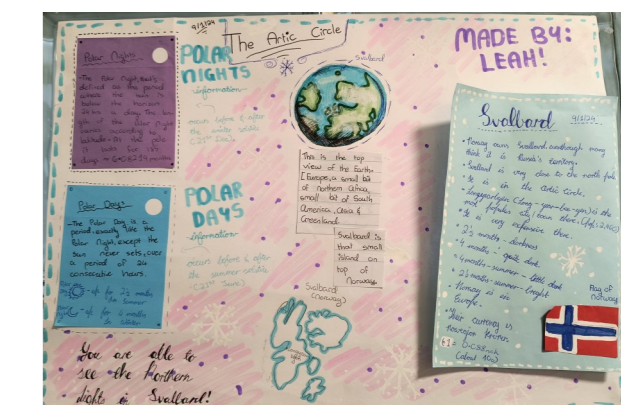 9/1/24
The Artic Circle
MADE BY:
LEAH!
Polar Nights
-The Polar Night is
defined as the period
where the sun is
below the horizon
24hrs a day. The
of the Polar Night
varies according to
latitude. At the pole
it lasts for
days
POLAR
NIGHTS
information
occurs before & after
the winter
(21st Dec)
Svalbard
This is the top
view of the Earth.
[Europe, a small bit
of northern Africa,
small bit of South
America, Asia &
Greenland
Svalbard is
that small
island on
top of
Norway
Svalbard
(norway)
Polar Days
-The Polar Day is a
period exactly like the
Polar Night, except the
Sun never sets, over
a period of 24
consecutive hours.
POLAR
DAYS
information
occurs before & after
the summer
(21st June)
You are able to
see the Northern
Light in Svalbard!
Svalbard 9/1/24
Norway own Svalbard, although many
think that it is Russia's territory.
Svalbard is very close to the north pole.
It is in the Artic circle.
Longyearbyen
most popular city/town there.
It is very expensive there.
2½ months - darkness
4 months - quite dark
4 months - summer - little dark
2½ months - summer - bright
Norway is in
Europe.
Their currency is
Norwegian Kroner.
flag of
norway